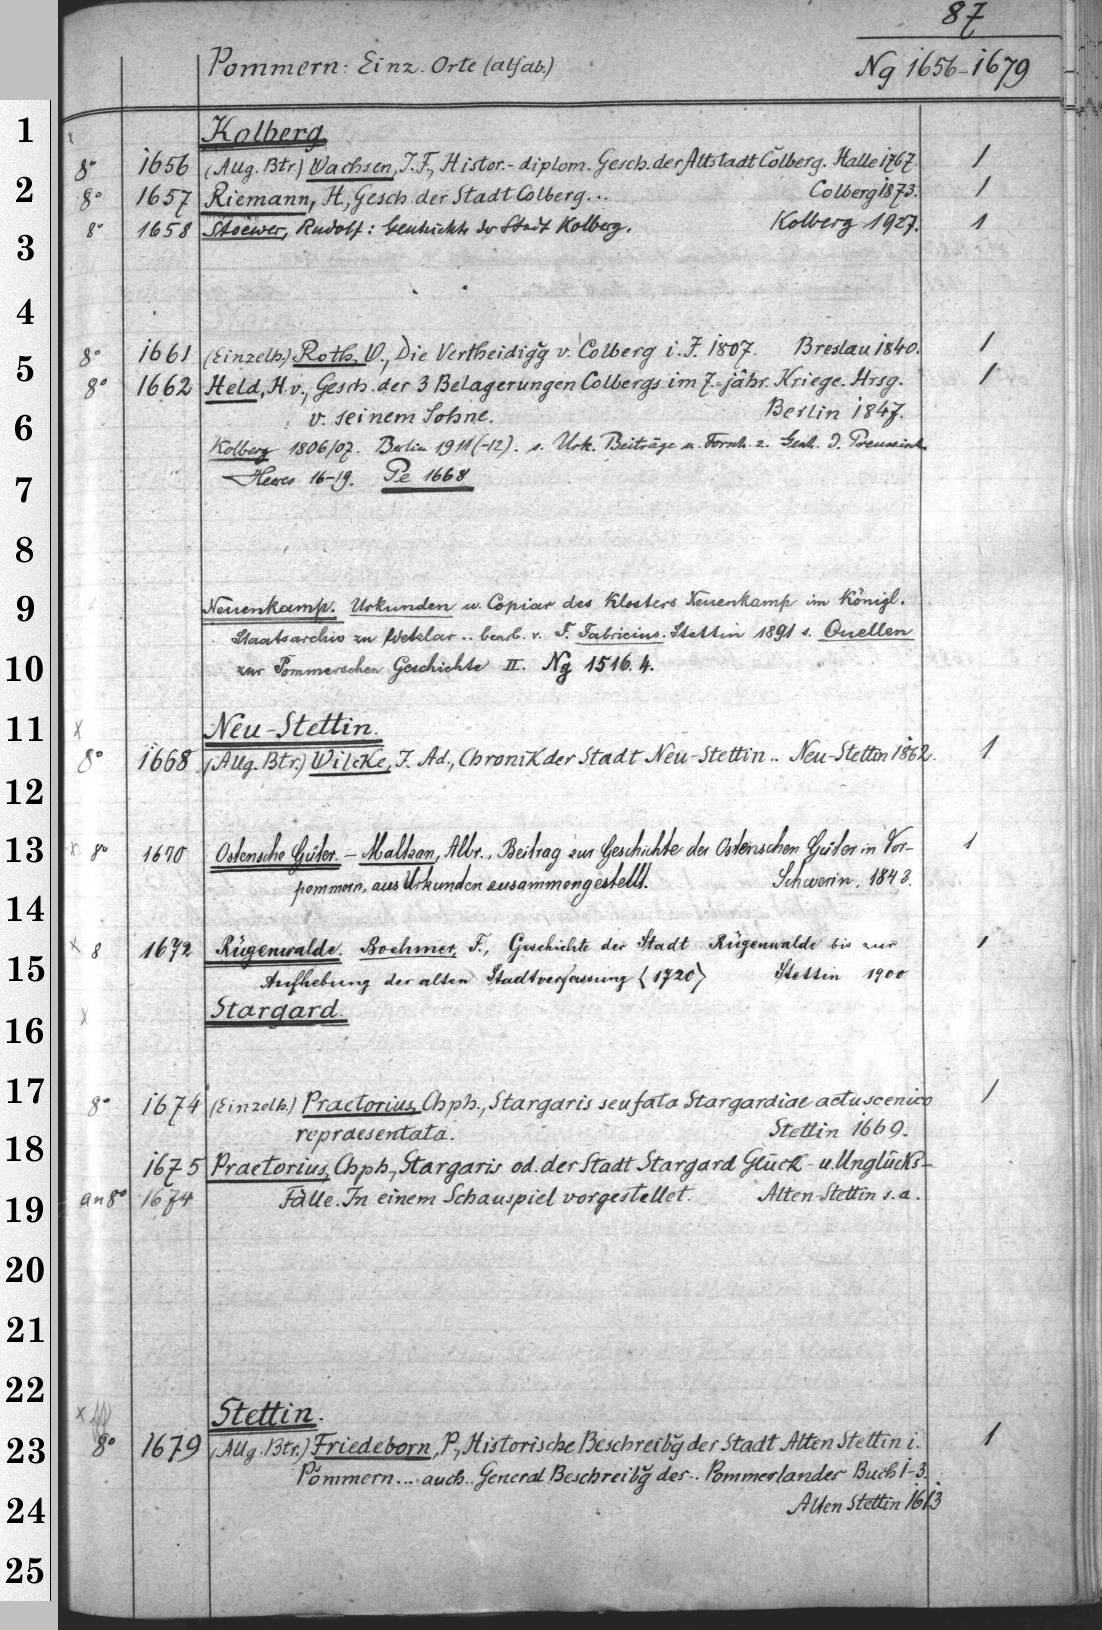 87
Pommern: Einz. Orte (alfab.) Ng 1656-1679
1
Kolberg
8° 1656 (Allg. Btr.) Wachsen, J. F., Histor.-diplom. Gesch. der Altstadt Colberg. Halle 1767. 1
2
8° 1657 Riemann, H., Gesch. der Stadt Colberg... Colberg 1873. 1
8° 1658 Stoewer, Rudolf: Geschichte der Stadt Kolberg. Kolberg 1927. 1
3
4
8° 1661 (Einzelh.) Roth, W., Die Vertheidigg v. Colberg i. J. 1807. Breslau 1840. 1
5
8° 1662 Held, H. v., Gesch. der 3 Belagerungen Colbergs im 7-jähr. Kriege. Hrsg. 1
v. seinem Sohne. Berlin 1847.
6
Kolberg 1806/07. Berlin 1911(-12). s. Urk. Beiträge u. Forsch. z. Gesch. d. Preussisch.
Heeres 16-19. Pe 1668
7
8
9
Neuenkamp. Urkunden u. Copiar des Klosters Neuenkamp im Königl.
Staatsarchiv zu Wetzlar .. bearb. v. F. Fabricius. Stettin 1891 s. Quellen
10
zur Pommerschen Geschichte II. Ng 1516. 4.
11
x Neu-Stettin.
8° 1668 (Allg. Btr.) Wilcke, J. Ad., Chronik der Stadt Neu-Stettin .. Neu-Stettin 1862. 1
12
13
x 8° 1670 Ostensche Güter. - Maltzan, Albr., Beitrag zur Geschichte der Ostenschen Güter in Vor- 1
pommern, aus Urkunden zusammengestellt. Schwerin. 1843.
14
x 8 1672 Rügenwalde. Boehmer, F., Geschichte der Stadt Rügenwalde bis zur 1
15
Aufhebung der alten Stadtverfassung <1720> Stettin 1900
16
x Stargard.
17
8° 1674 (Einzelh.) Praetorius, Chph., Stargaris seu fata Stargardiae actu scenico 1
repraesentata. Stettin 1669.
18
1675 Praetorius, Chph., Stargaris od. der Stadt Stargard Glück- u. Unglücks-
19
an 8° 1674 Fälle. In einem Schauspiel vorgestellet. Alten-Stettin s. a.
20
21
22
x Stettin.
23
8° 1679 (Allg. Btr.) Friedeborn, P., Historische Beschreibg der Stadt Alten Stettin i. 1
Pommern... auch.. General Beschreibg des.. Pommerlandes Buch 1-3.
24
Alten Stettin 1613
25